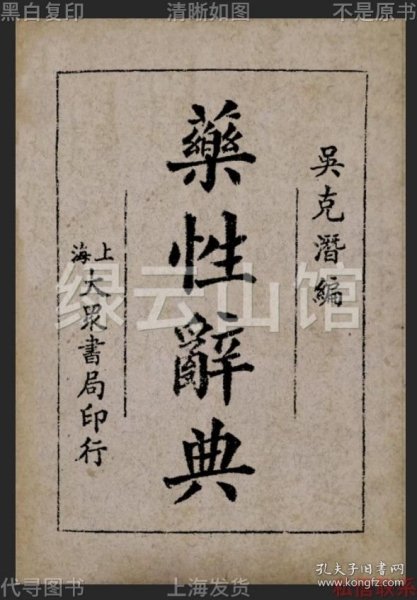 黑白复印 清晰如图 不是原书
吳克潛編
藥性辭典
上海
大眾書局印行
绿云山馆
孔夫子旧书网
www.kongfz.com
代寻图书 上海发货 私信联系